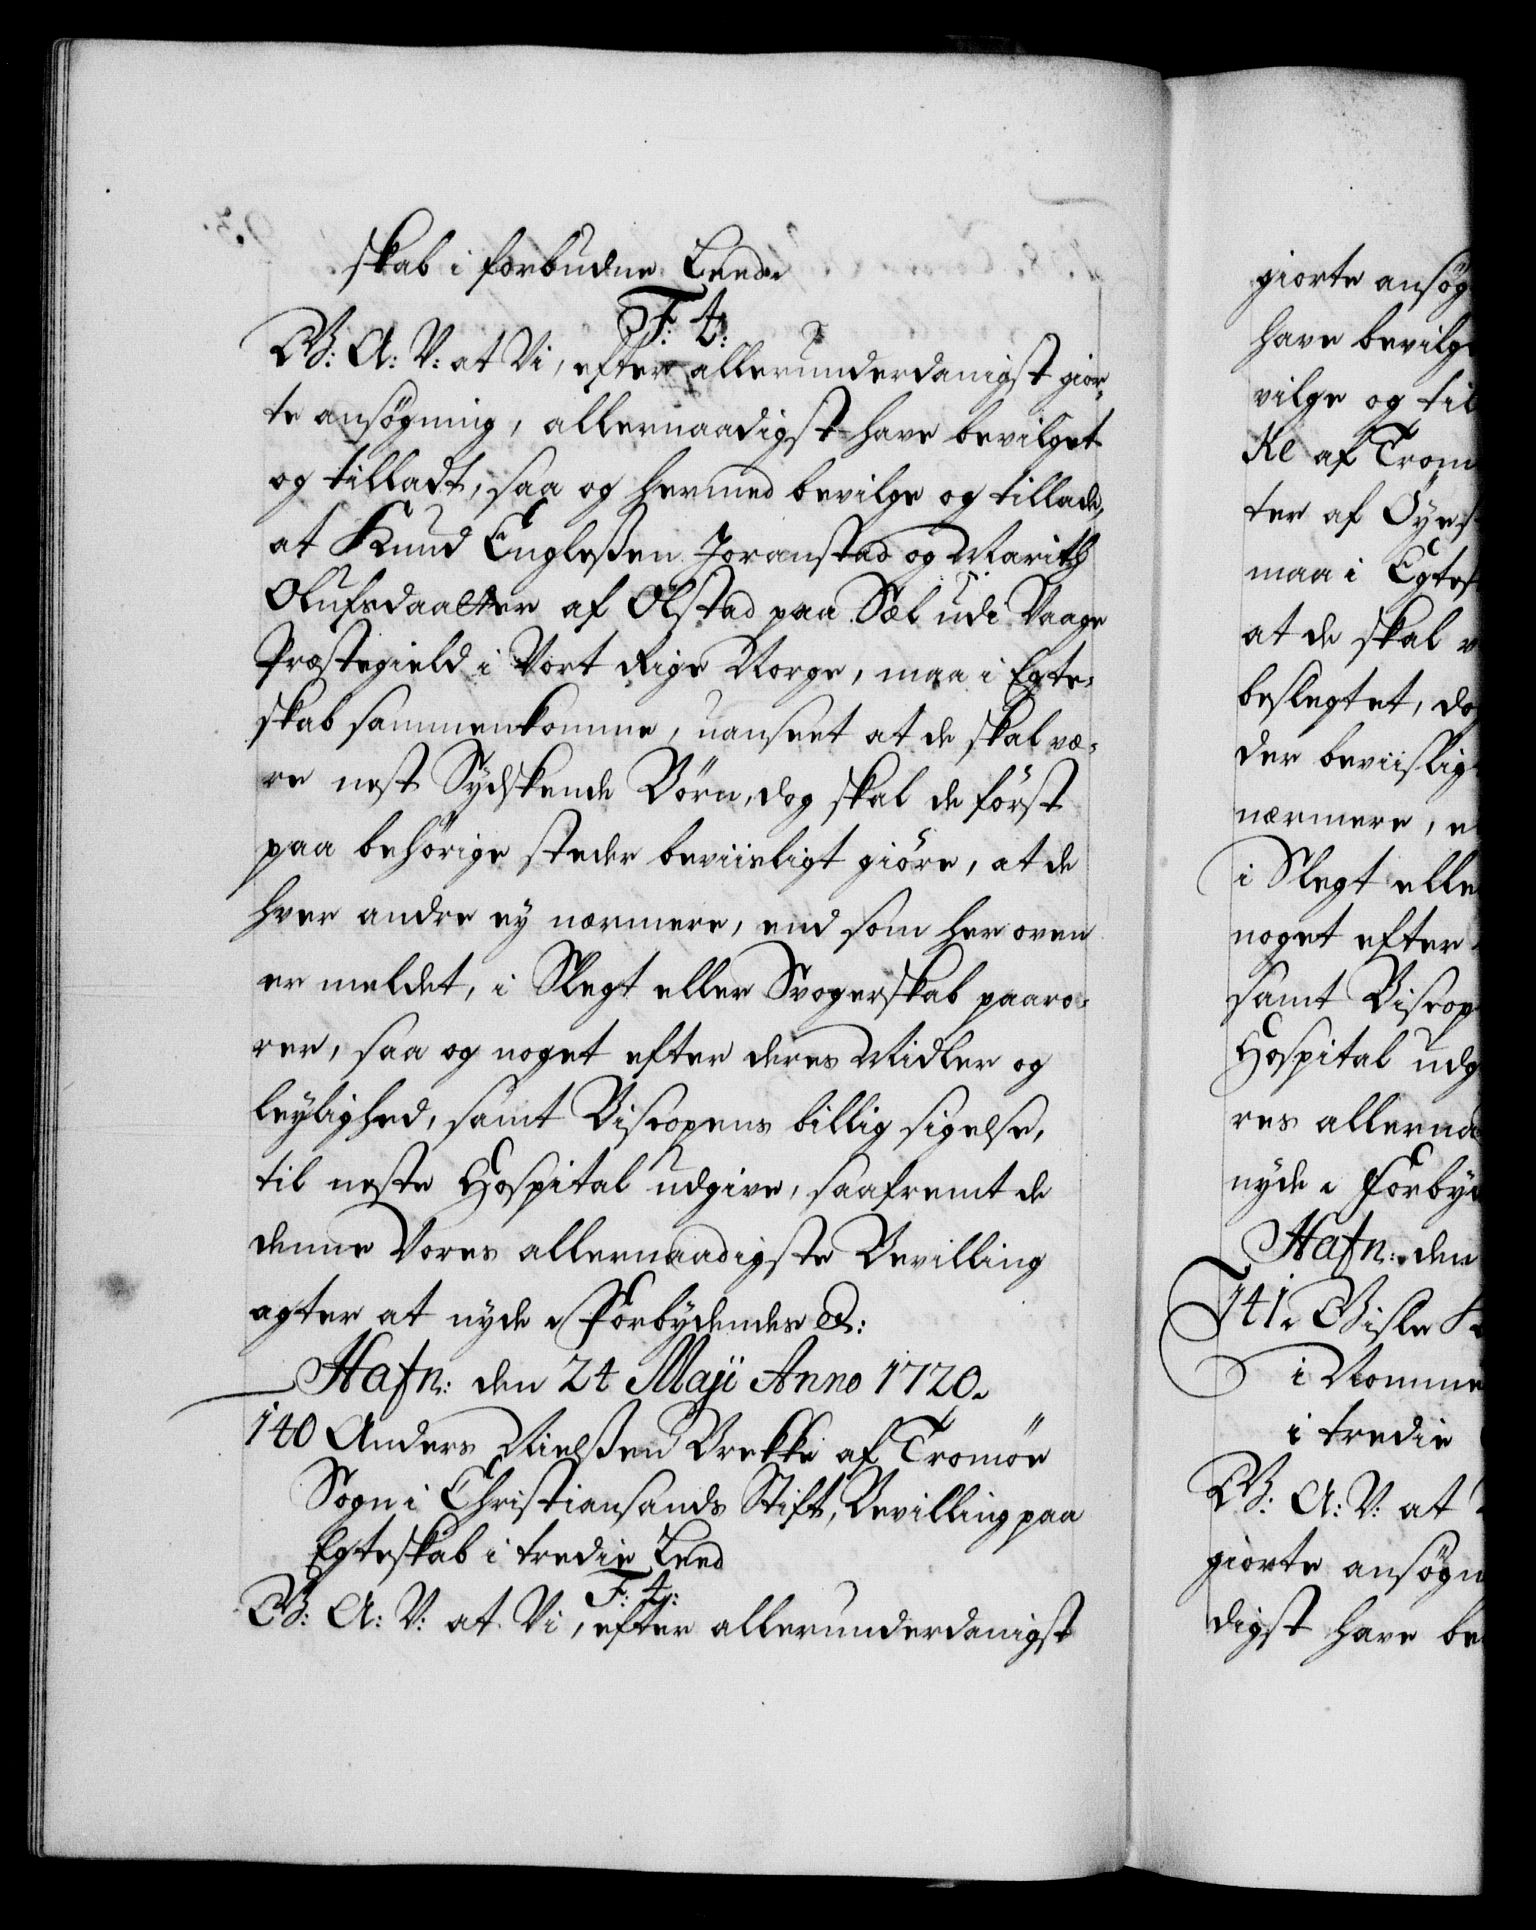 skab i forbudne Leed.
F: 4:
G: A: V: at Vi, efter allerunderdanigst gior-
te ansøgning, allernaadigst have bevilget
og tilladt, saa og hermed bevilge og tillade,
at Knud Engleßen Joranstad og Marith
Olufsdaatter af Olstad paa Sæl udi Vaage
Præstegield i Vort Rige Norge, maa i Egte-
skab sammenkomme, uanseet at de skal væ-
re nest Sydskende Börn, dog skal de först
paa behörige steder beviisligt giöre, at de
hver andre ey nærmere, end som her oven
er meldet, i Slegt eller Svogerskab paarö-
rer, saa og noget efter deres Midler og
leylighed, samt Biscopens billig sigelse,
til neste Hospital udgive, saafremt de
denne Vores allernaadigste Bevilling
agter at nyde. Forbydendes &:
Hafn: den 24 Maji Anno 1720.
140 Anders Nielßen Brekke af Tromöe
Sogn i Christiansands Stift, Bevilling paa
Egteskab i tredie Leed
F: 4:
G: A: V: at Vi, efter allerunderdanigst
giorte ansög
have bevilge
vilge og til
ke af Trom
ter af Öyes
maa i Egtes
at de skal v
beslegtet, dog
der beviislig
nærmere, e
i Slegt elle
noget efter
samt Biscop
Hospital udg
res allernaa
nyde. Forbyd
Hafn: den
141. Gisle K
i Nomme
i tredie
G: A: V: at
giorte ansögn
digst have be